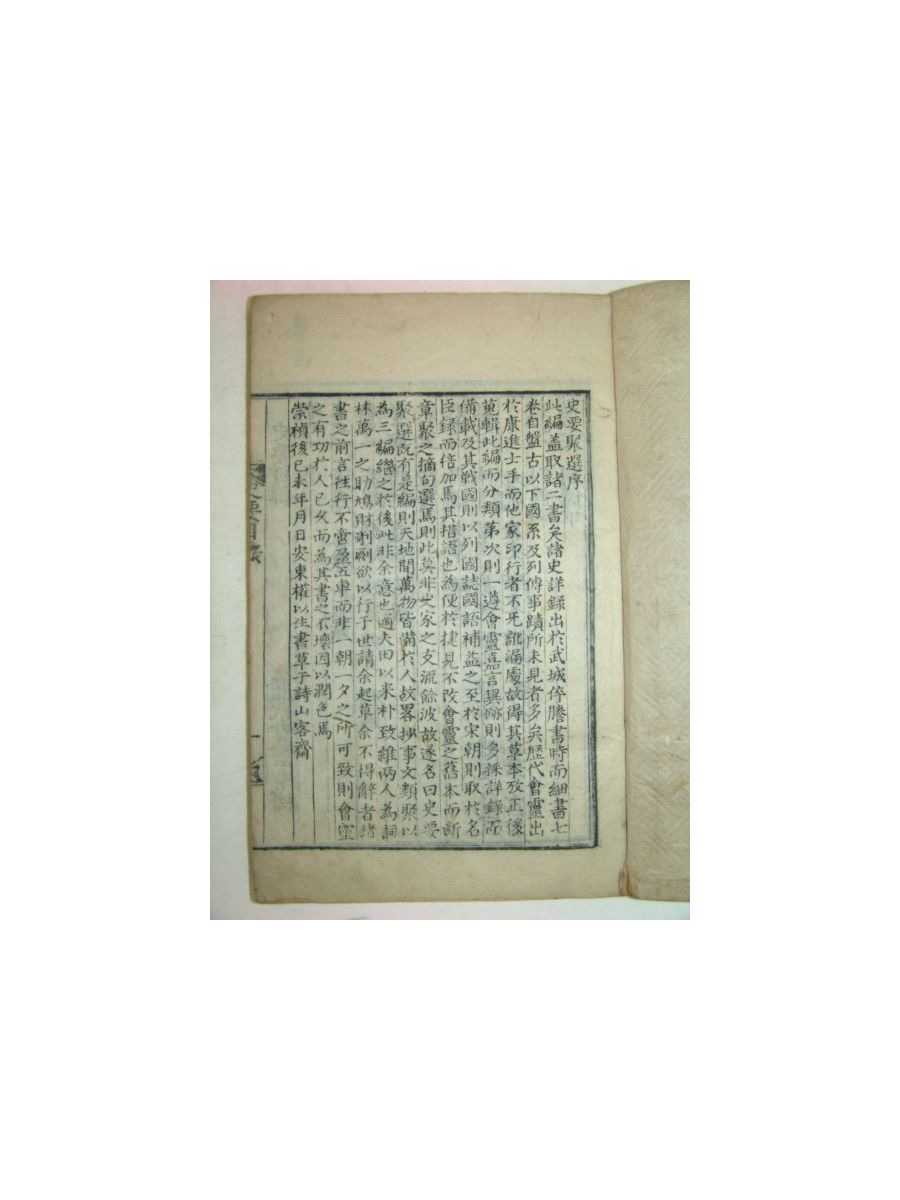 史要聚選序
此編盖取諸二書矣諸史詳錄出於武城倅謄書時而細書七
卷自盤古以下國系及列傳事蹟所未見者多矣歷代會靈出
於康進士手而他家印行者不免訛漏處故得其草本攷正後
蒐輯此編而分類第次則一遵會靈嘉言異跡則多採詳錄而
備載及其戰國則以列國誌國語補益之至於宋朝則取於名
臣錄而倍加焉其措語也為便於捷見不改會靈之舊本而断
章聚之摘句選焉則此莫非史家之支流餘波故遂名曰史要
聚選既有是編則天地間萬物皆備於人故畧抄事文類聚以
為三編繼之於後此非余意也適夫田以采朴致維兩人為詞
林萬一之助鳩財剞劂欲以行于世請余起草余不得辭者諸
書之前言往行不啻盈五車而非一朝一夕之所可致則會靈
之有功於人已久而為其書之不壞因以潤色焉
崇禎後己未年月日安東權以生書草于詩山客齋